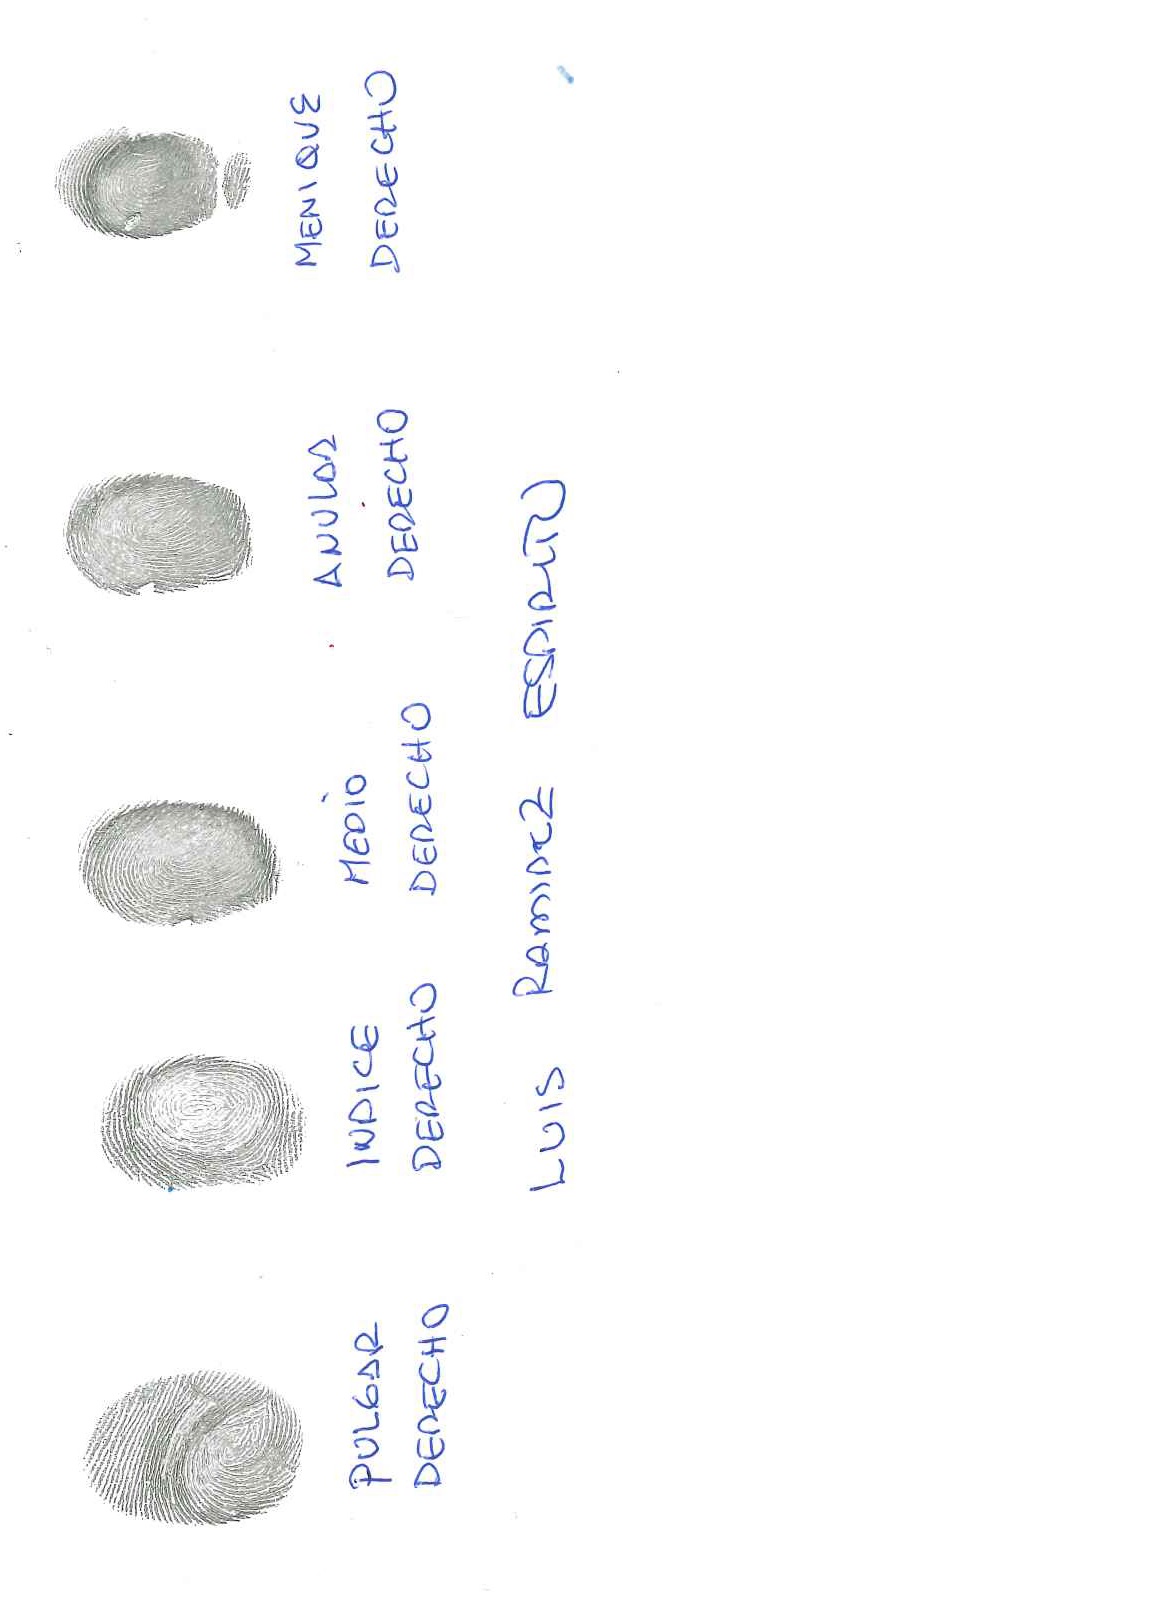 PULGAR
DERECHO
INDICE
DERECHO
MEDIO
DERECHO
ANULAR
DERECHO
MENIQUE
DERECHO
LUIS RAMIREZ ESPIRITU